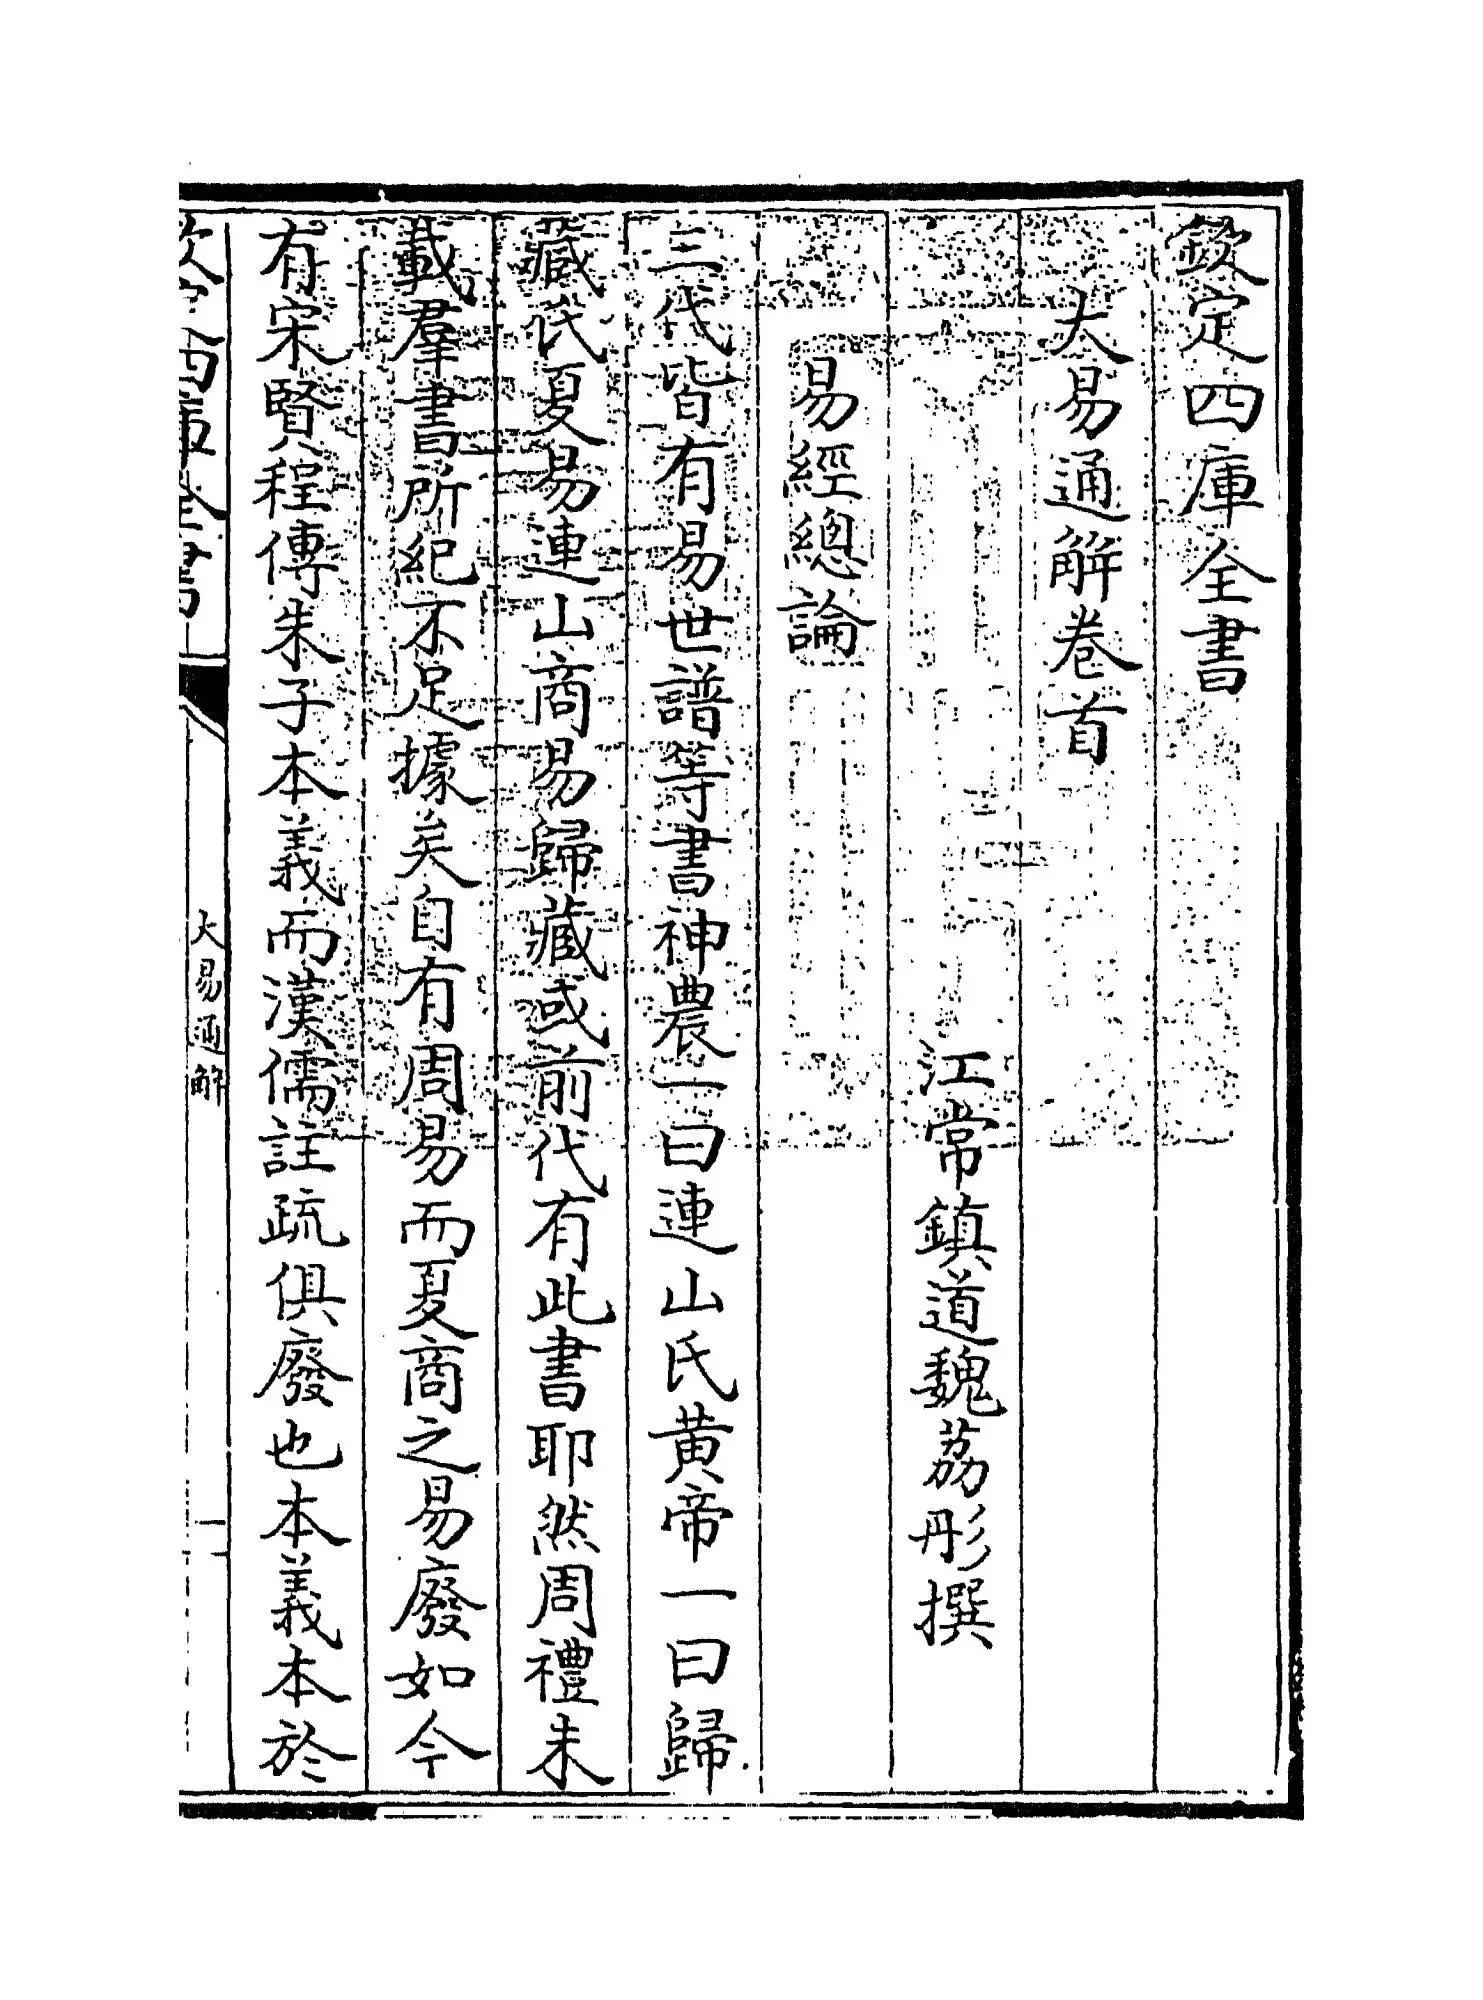 欽定四庫全書
大易通解卷首
江常鎮道魏荔彤撰
易經總論
三代皆有易世譜等書神農一曰連山氏黄帝一曰歸
藏氏夏易連山商易歸藏或前代有此書耶然周禮未
載羣書所紀不足據矣自有周易而夏商之易廢如今
有宋賢程傳朱子本義而漢儒註疏俱廢也本義本於
欽定四庫全書
大易通解
一